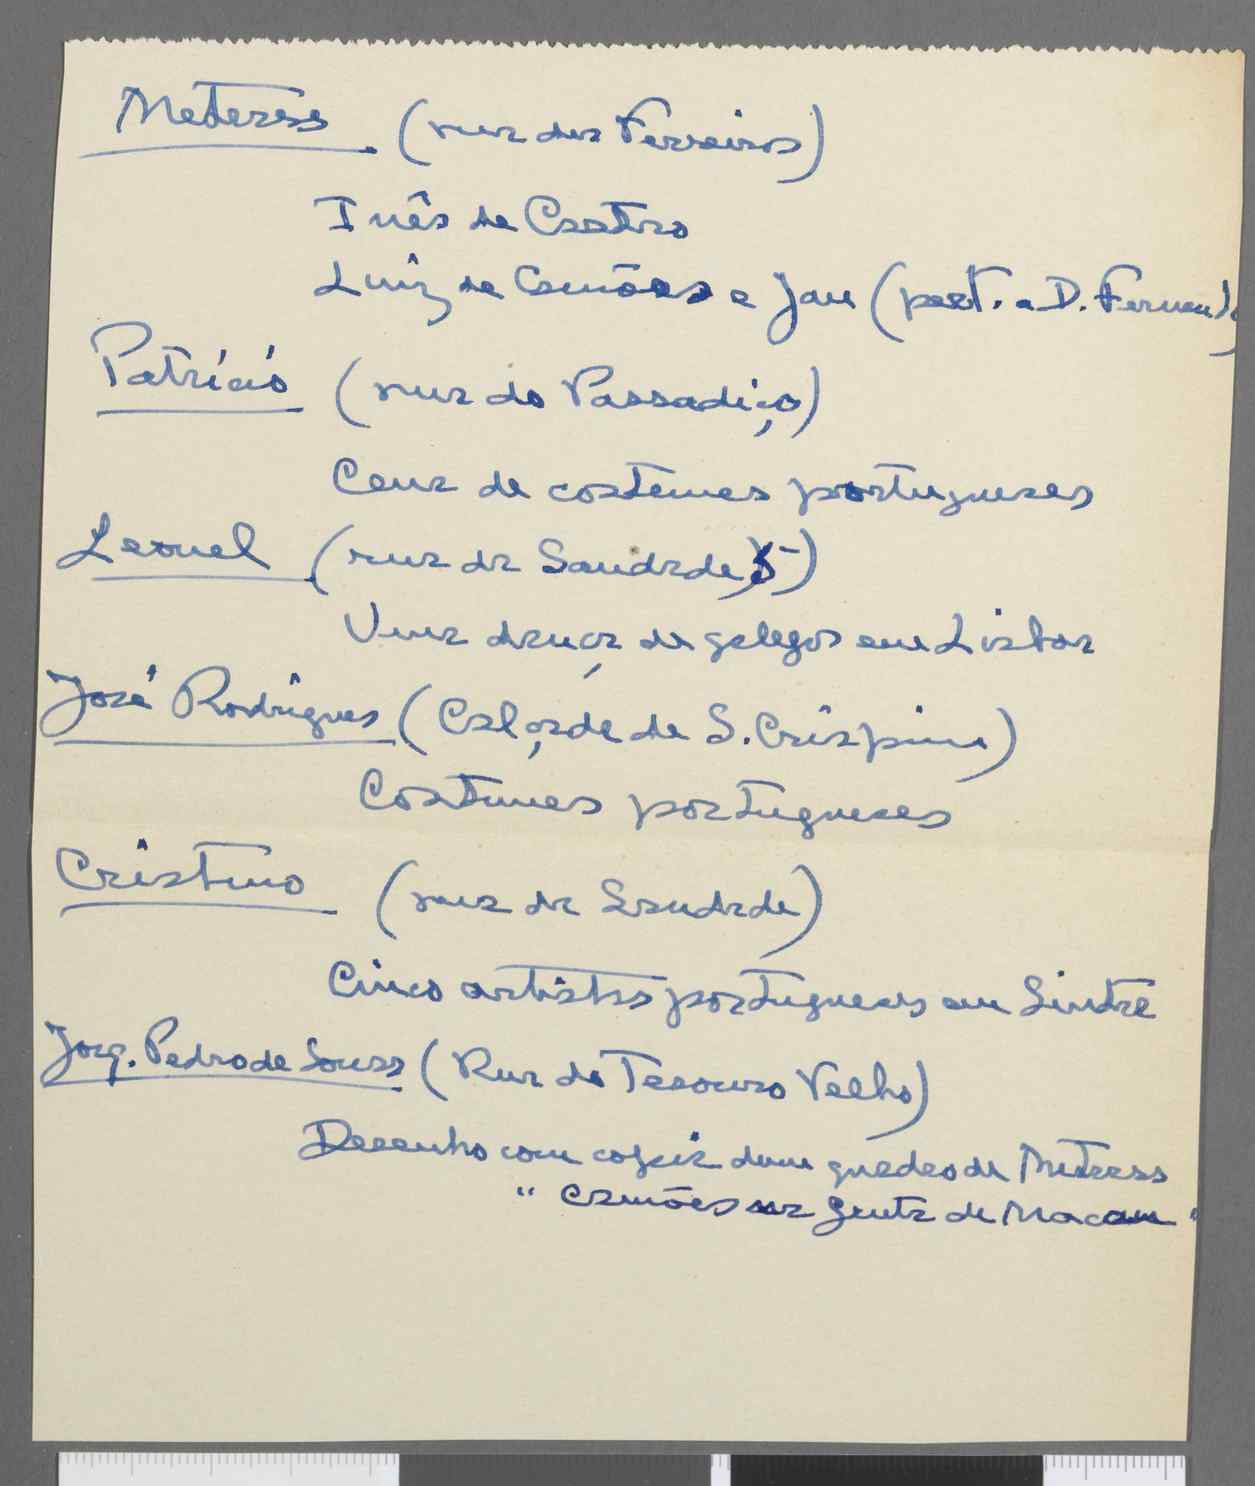 Metrass (rua dos Ferreiros)
Inês de Castro
Luiz de Camões e Jau (pert. a D. Fernando
Patrício (rua do Passadiço)
Cena de costumes portugueses
Leonel (rua da Saudade, 5)
Uma dança de galegos em Lisboa
José Rodrigues (Calçada de S. Crispim)
Costumes portugueses
Cristino (rua da Saudade)
Cinco artistas portugueses em Sintra
Joaq. Pedro de Sousa (Rua do Tesouro Velho)
Desenho com copia dum quadro de Metrass
"Camões na gruta de Macau"